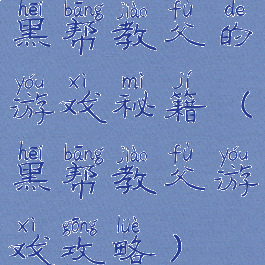 hēi bāng jiào fù de
黑帮教父的
yóu xì mì jí
游戏秘籍（
hēi bāng jiào fù yóu
黑帮教父游
xì gōng luè
戏攻略）